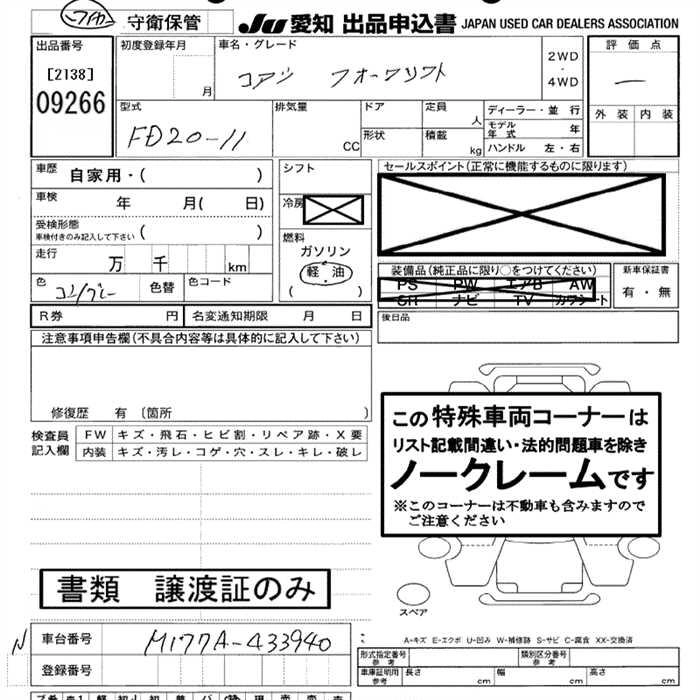 守衛保管
JU 愛知 出品申込書 JAPAN USED CAR DEALERS ASSOCIATION
出品番号 初度登録年月 車名・グレード 評価点
[2138]
09266
月
コマツ フォークリフト
2WD
・
4WD
ー
外装 内装
型式 排気量 ドア 定員 ディーラー・並行
FD20-11
CC
形状 積載
人
kg
モデル年式 年
ハンドル 左・右
車歴 自家用・( )
シフト
セールスポイント(正常に機能するものに限ります)
車検 年 月( 日)
冷房
受検形態
車検付きのみ記入して下さい ( )
燃料
ガソリン
軽・油
( )
走行 万 千 km
装備品(純正品に限り○をつけてください) 新車保証書
PS PW エアB AW
SR ナビ TV カワシート
有・無
色 コングレー 色替 色コード
R券 円 名変通知期限 月 日
後日品
注意事項申告欄(不具合内容等は具体的に記入して下さい)
修復歴 有 〔箇所 〕
検査員記入欄
FW キズ・飛石・ヒビ割・リペア跡・X要
内装 キズ・汚レ・コゲ・穴・スレ・キレ・破レ
この特殊車両コーナーは
リスト記載間違い・法的問題車を除き
ノークレームです
※このコーナーは不動車も含みますので
ご注意ください
書類 譲渡証のみ
スペア
A-キズ E-エクボ U-凹み W-補修跡 S-サビ C-腐食 XX-交換済
N 車台番号 M177A-433940
登録番号
形式指定番号 参考 類別区分番号 参考
車庫証明用 参考 長さ cm 幅 cm 高さ cm